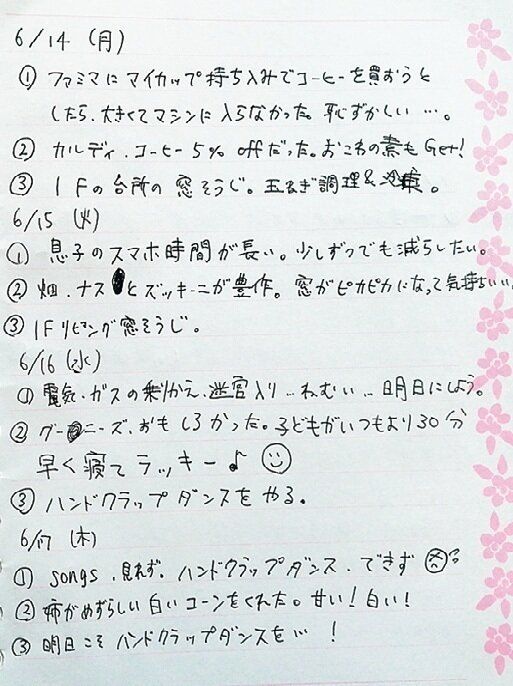 6/14 (月)
① ファミマに マイカップ 持ち込みで コーヒーを買おうと
したら、大きくてマシンに入らなかった。恥ずかしい…。
② カルディ、コーヒー 5% offだった。おこわの素も Get!
③ 1Fの台所の窓そうじ。玉ねぎ調理& 。
6/15 (火)
① 息子のスマホ時間が長い。少しずつでも減らしたい。
② 畑、ナスとズッキーニが豊作。窓がピカピカになって気持ちいい。
③ 1Fリビング窓そうじ。
6/16 (水)
① 電気、ガスの乗りかえ、迷宮入り…ねむい…明日にしよう。
② グーニーズ、おもしろかった。子どもがいつもより30分
早く寝てラッキー♪
③ ハンドクラップダンスをやる。
6/17 (木)
① songs、見れず。ハンドクラップダンス、できず
② 姉がめずらしい白いコーンをくれた。甘い!白い!
③ 明日こそハンドクラップダンスを… !